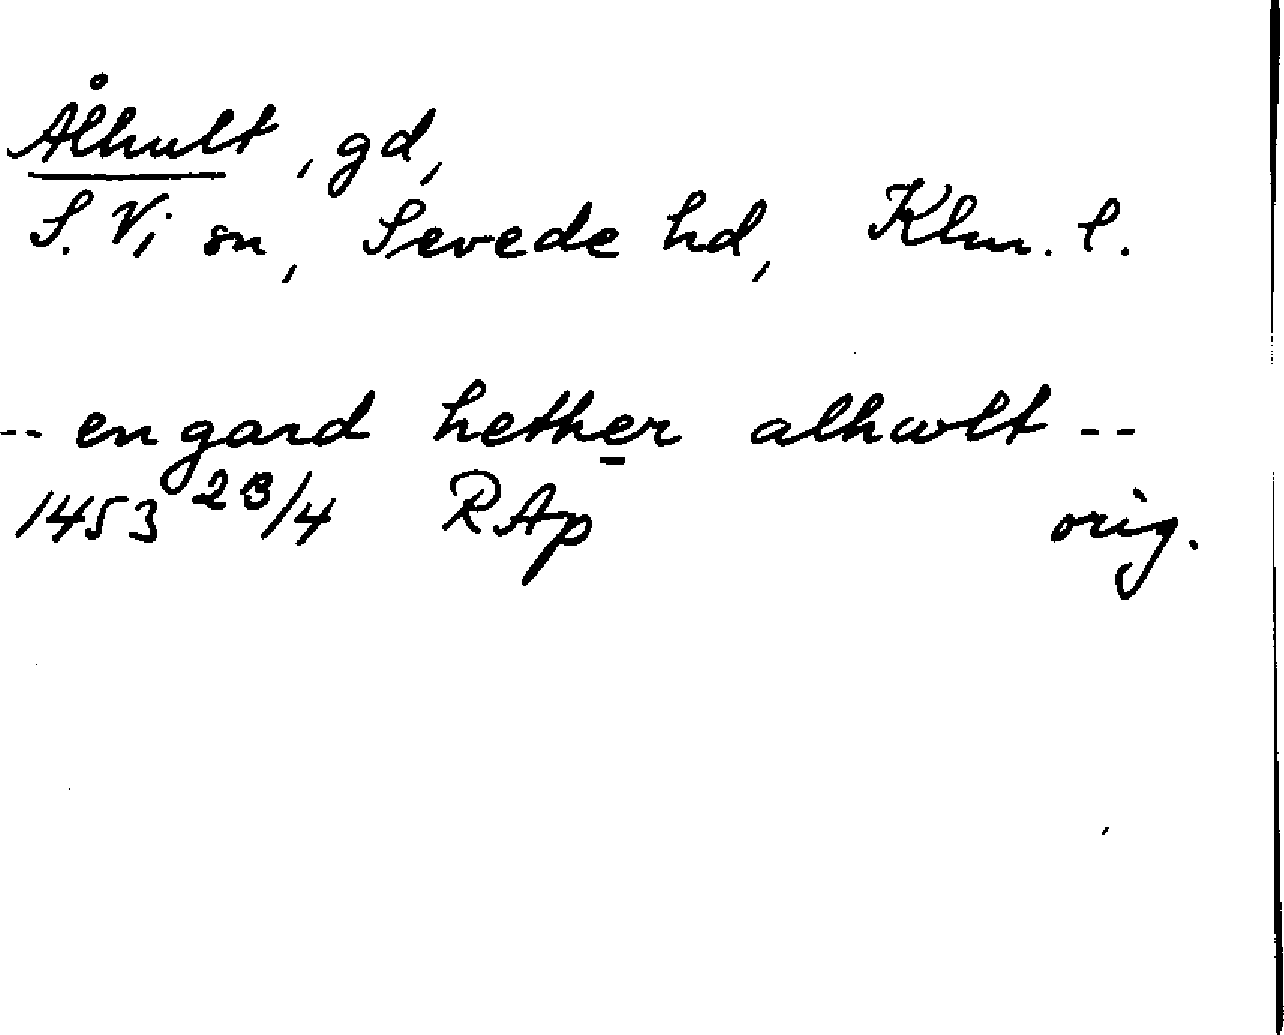 Ålhult, gd,
S. Vi sn, Sevede hd, Klm. l.
-- en gard hether alhwlt --
1453 23/4 RAp orig.